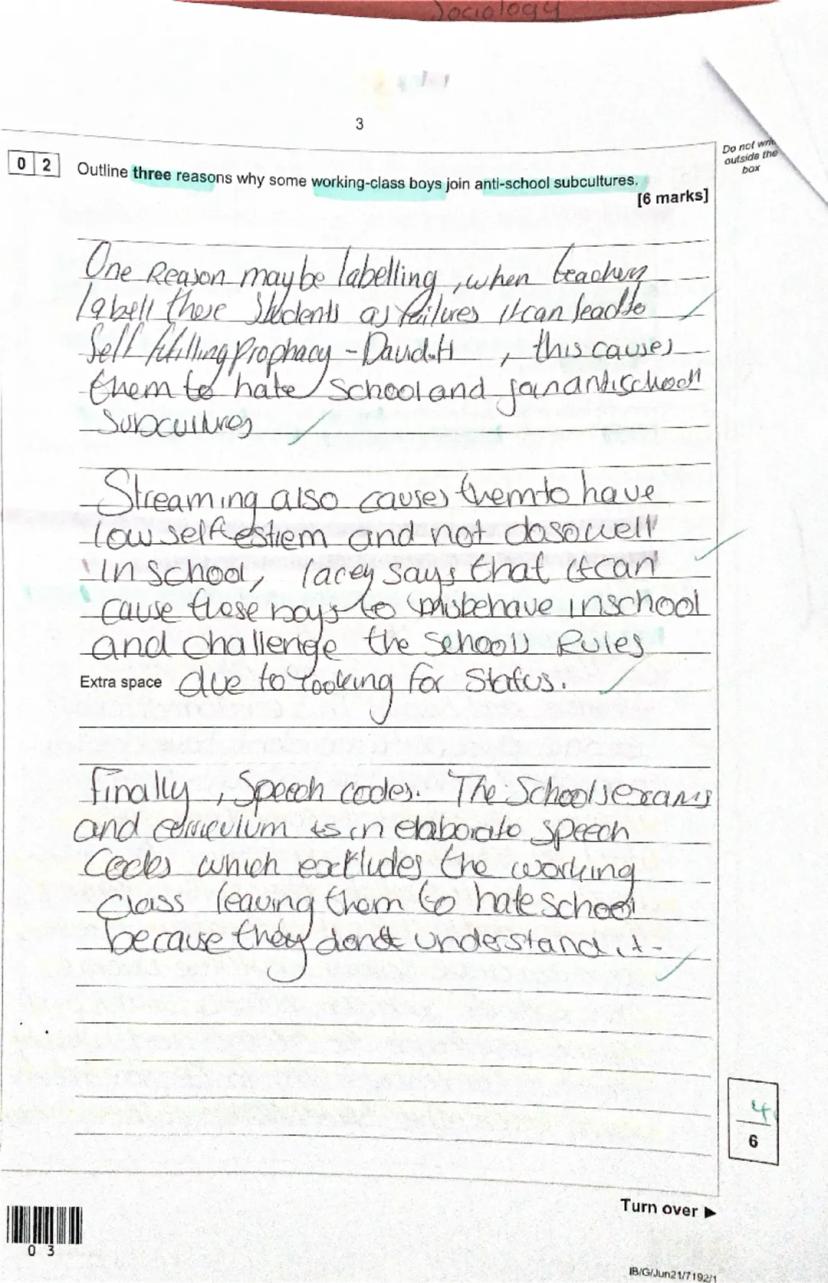 Sociology
3
Do not write
outside the
box
0 2 Outline three reasons why some working-class boys join anti-school subcultures.
[6 marks]
One Reason may be labelling, when teachers
labell these students as failures it can lead to
Self fulfilling Prophacy - David.H , this causes
them to hate School and join antischool
Subcultures
Streaming also causes them to have
low self estiem and not do so well
in school, lacey says that it can
cause these boys to misbehave in school
and challenge the schools Rules
Extra space due to looking for Status.
finally, Speech codes. The Schools exams
and curriculum is in elaborate speech
Codes which excludes the working
class leaving them to hate school
because they dont understand it.
4
6
Turn over ►
0 3
IB/G/Jun21/7192/1